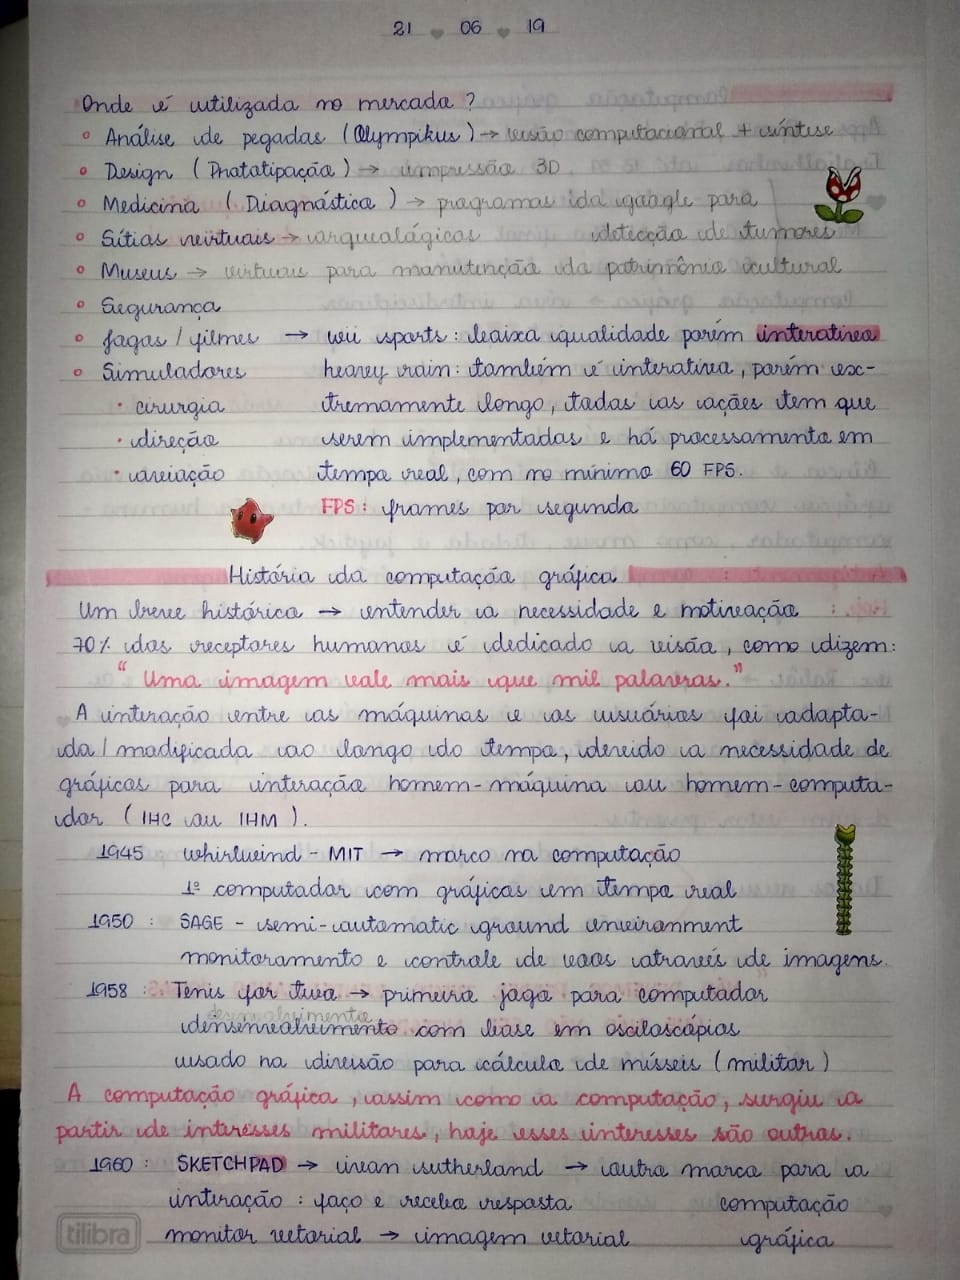 21 06 19
Onde é utilizada no mercado?
Análise de pegadas (Olympikus) → visão computacional + síntese
Design (Prototipação) → impressão 3D
Medicina (Diagnóstico) → programas da google para
Sítios virtuais → arqueológicos detecção de tumores
Museus → virtuais para manutenção do patrimônio cultural
Segurança
Jogos / filmes → wii sports: baixa qualidade porém interativa
Simuladores heavy rain: também é interativo, porém ex-
• cirurgia tremamente longo, todas as ações tem que
• direção serem implementadas e há processamento em
• aviação tempo real, com no mínimo 60 FPS.
FPS: frames por segundo
História da computação gráfica
Um breve histórico → entender a necessidade e motivação
70% dos receptores humanos é dedicado a visão, como dizem:
"Uma imagem vale mais que mil palavras."
A interação entre as máquinas e os usuários foi adapta-
da/modificada ao longo do tempo, devido a necessidade de
gráficos para interação homem-máquina ou homem-computa-
dor (IHC ou IHM).
1945 whirlwind - MIT → marco na computação
1º computador com gráficos em tempo real
1950: SAGE - semi-automatic ground environment
monitoramento e controle de voos através de imagens.
1958: Tenis for two → primeiro jogo para computador
desenvolvimento
com base em osciloscópios
usado na divisão para cálculo de mísseis (militar)
A computação gráfica, assim como a computação, surgiu a
partir de interesses militares, hoje esses interesses são outros.
1960: SKETCHPAD → ivan sutherland → outro marco para a
interação: faço e recebo resposta computação
monitor vetorial → imagem vetorial gráfica
tilibra